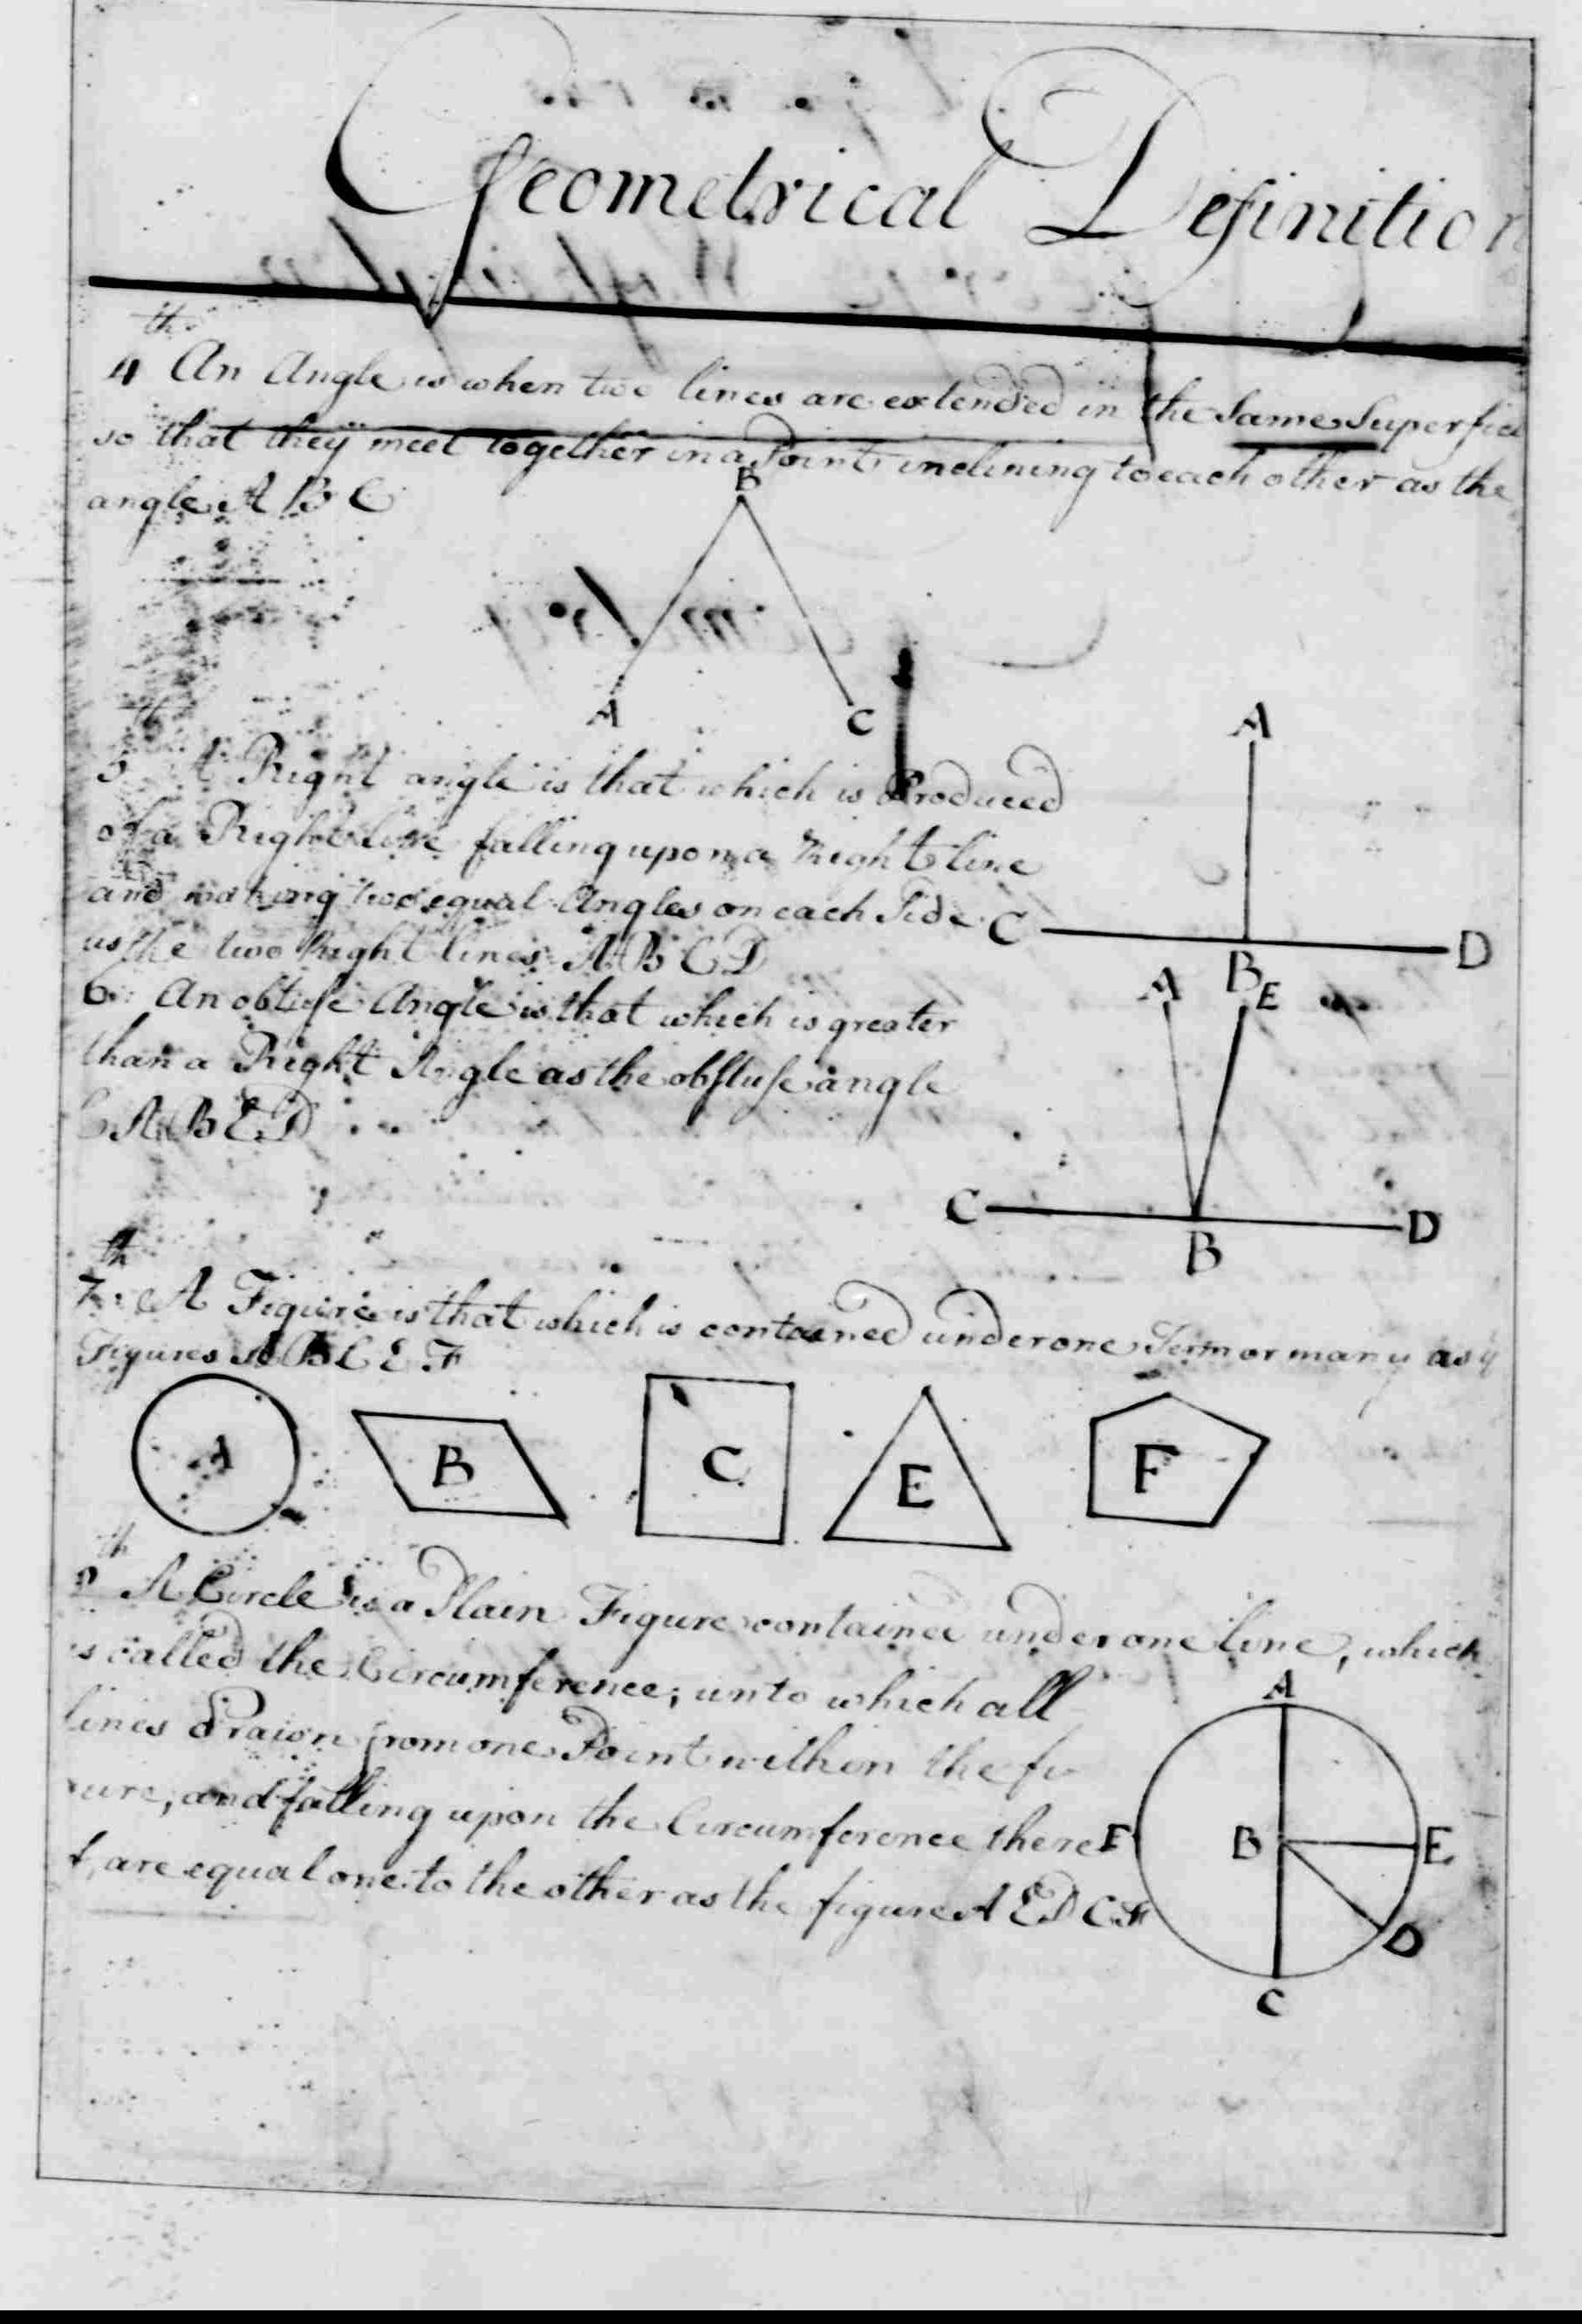 Geometrical Definition
4th An Angle is when two lines are extended in the Same Superfici
so that they meet together in a Point inclining to each other as the
angle A B C
B
A
C
5 A Right angle is that which is Produced
of a Right line falling upon a Right line
and making two equal Angles on each Side
as the two Right lines A B C D
A
C
D
B
6th An obtuse Angle is that which is greater
than a Right Angle as the obstuse angle
C A B E D
A
E
C
D
B
7th A Figure is that which is contained under one Term or many as y
Figures A B C E F
A
B
C
E
F
8th A Circle is a Plain Figure contained under one line, which
is called the Circumference; unto which all
lines Drawn from one Point within the fi
gure, and falling upon the Circumference there
f, are equal one to the other as the figure A E D C F
A
F
B
E
D
C